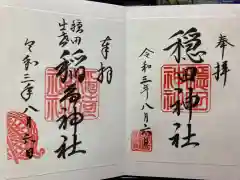 奉拝
穏田神社
令和三年八月六日
奉拝
穏田
出世
稲荷神社
令和三年八月六日